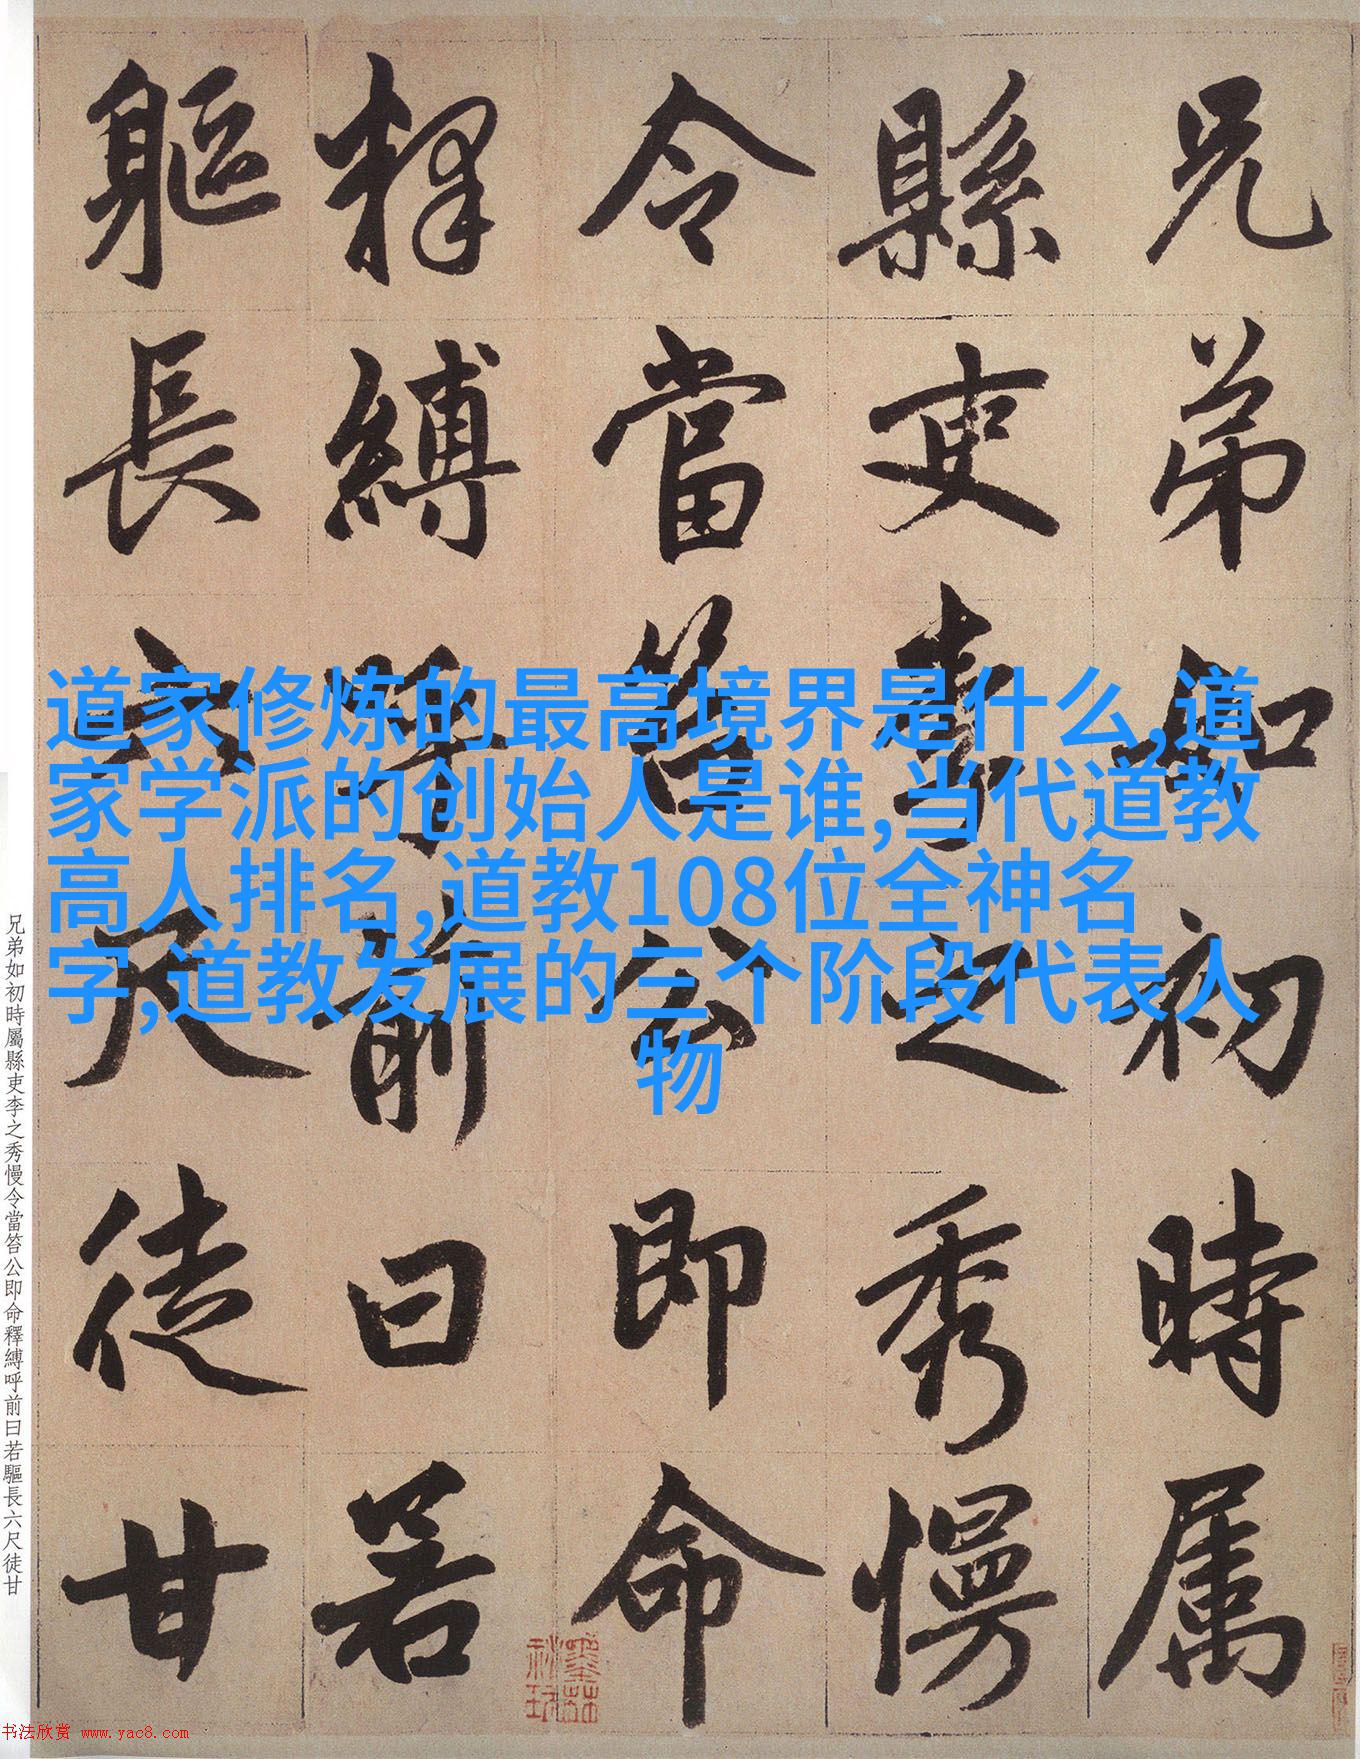 道家修炼的最高境界是什么,道
家学派的创始人是谁,当代道教
高人排名,道教108位全神名
字,道教发展的三个阶段代表人
物
兄弟如初時属
縣吏李之秀慢
令當笞公即命
釋縛呼前曰若
軀長六尺徒甘
兄弟如初時屬縣吏李之秀慢令當笞公即命釋縛呼前曰若驅長六尺徒甘
书法欣赏 www.yac8.com